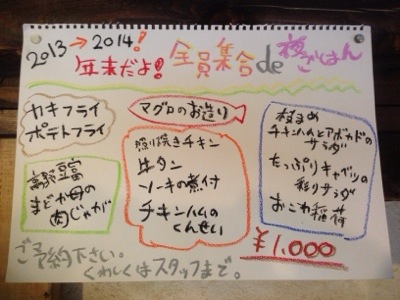 2013→2014!
年末だよ!全員集合de桜ごはん
カキフライ
ポテトフライ
マグロのお造り
高野豆腐
まどか母の
肉じゃが
照り焼きチキン
牛タン
ソーキの煮付
チキンハムの
くんせい
枝まめ
チキンハムとアボカドの
サラダ
たっぷりキャベツの
彩りサラダ
おこわ稲荷
¥1,000
ご予約下さい。
くわしくはスタッフまで。